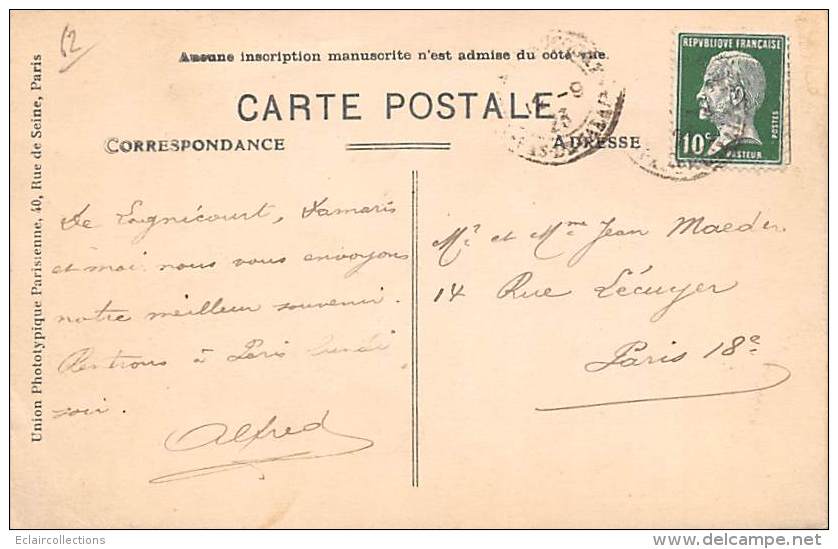 62
Aucune inscription manuscrite n'est admise du côté vue.
CARTE POSTALE
CORRESPONDANCE
ADRESSE
REPVBLIQUE FRANÇAISE
10c
POSTES
PASTEUR
Union Phototypique Parisienne, 40, Rue de Seine, Paris
De Lagnicourt, Damaris
et moi nous vous envoyons
notre meilleur souvenir.
Rentrons à Paris lundi
soir.
Alfred
Mr et Mme Jean Maeder
14 Rue Lécuyer
Paris 18e
Eclaircollections
delcampe.net